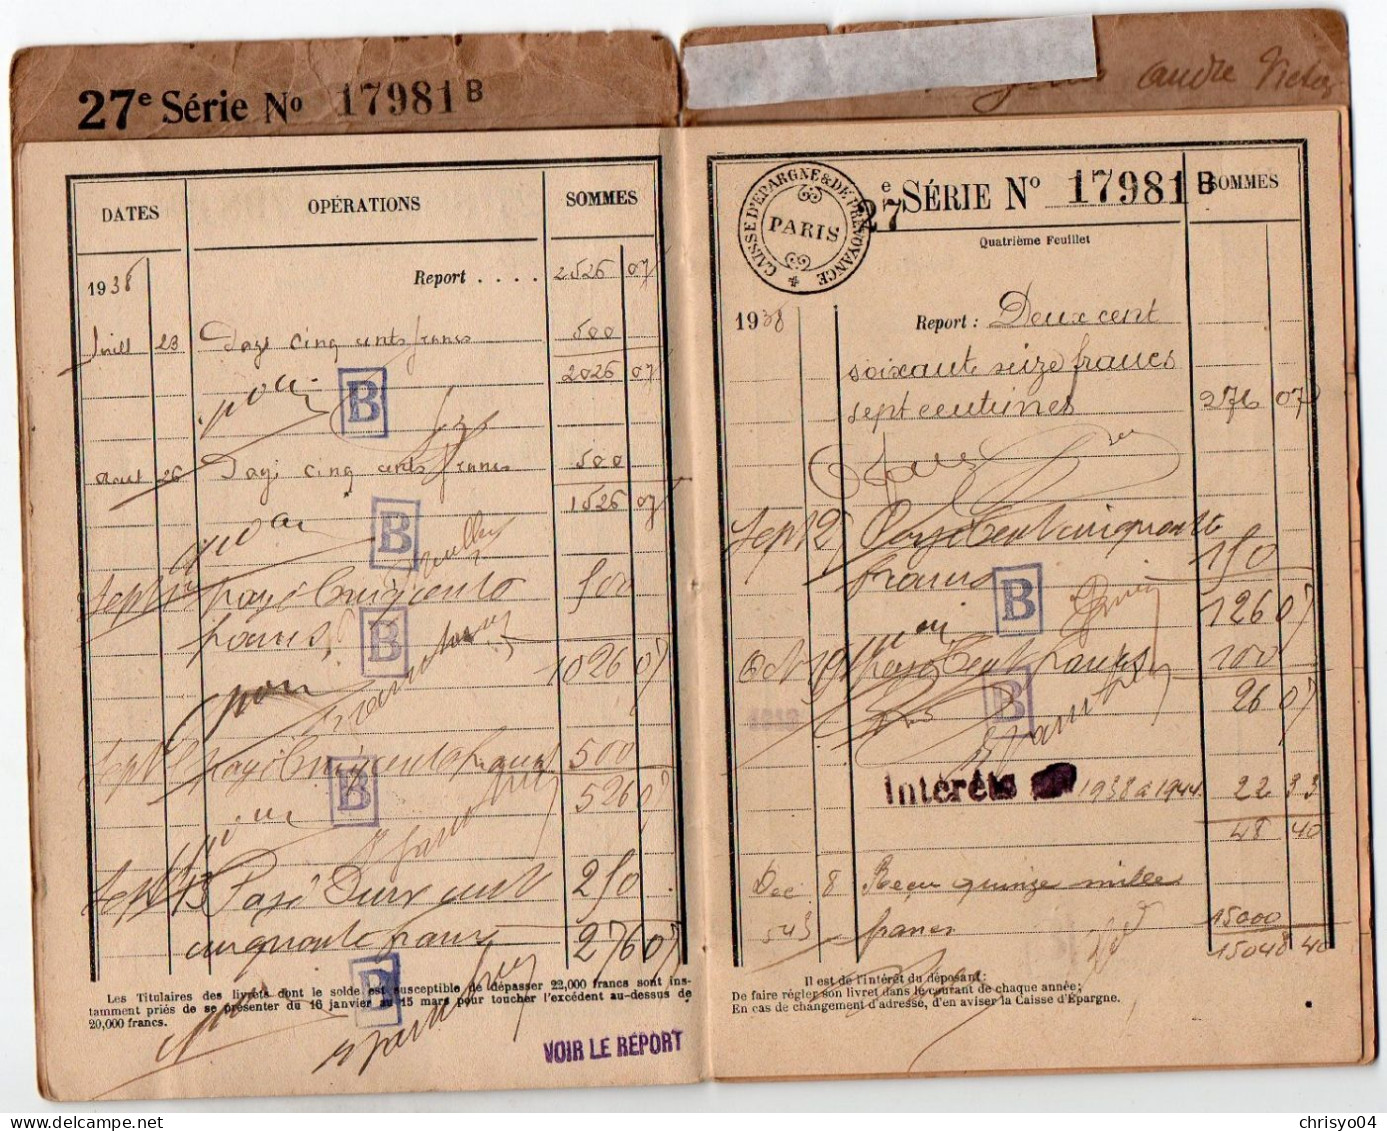 27e Série No 17981 B
André Victor
DATES OPÉRATIONS SOMMES
1938 Report . . . . 2526 07
Juill 23 Payé cinq cents francs 500
2026 07
B
Aout 26 Payé cinq cents francs 500
1526 07
B
Sept payé Cinq cents 500
francs
B
1026 07
Sept payé Cinq cents francs 500
B
526 07
Sept 13 Payé Deux cent 250
cinquante francs 276 07
B
Les Titulaires des livrets dont le solde est susceptible de dépasser 22,000 francs sont ins-
tamment priés de se présenter du 16 janvier au 15 mars pour toucher l'excédent au-dessus de
20,000 francs.
VOIR LE REPORT
CAISSE D'ÉPARGNE & DE PRÉVOYANCE
PARIS
27e SÉRIE No 17981 B SOMMES
Quatrième Feuillet
1938 Report : Deux cent
soixante seize francs
sept centimes 276 07
Sept Payé Cent cinquante
francs 150
B
126 07
Oct 19 payé Cent francs 100
B
26 07
Intérêts 1938 a 1944 22 33
48 40
Dec 8 Reçu quinze mille
francs 15000
15048 40
Il est de l'intérêt du déposant:
De faire régler son livret dans le courant de chaque année;
En cas de changement d'adresse, d'en aviser la Caisse d'Épargne.
chrisyo04